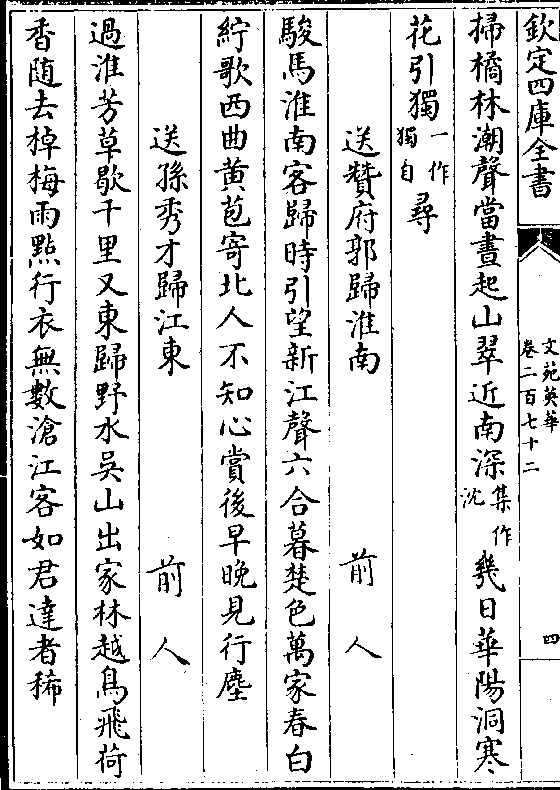 欽定四庫全書
文苑英華
卷二百七十二
四
掃橘林潮聲當晝起山翠近南深集作沈幾日華陽洞寒
花引獨一作獨自尋
送贊府郭歸淮南
前人
駿馬淮南客歸時引望新江聲六合暮楚色萬家春白
紵歌西曲黄苞寄北人不知心賞後早晚見行塵
送孫秀才歸江東
前人
過淮芳草歇千里又東歸野水吳山出家林越鳥飛荷
香随去棹梅雨點行衣無數滄江客如君達者稀